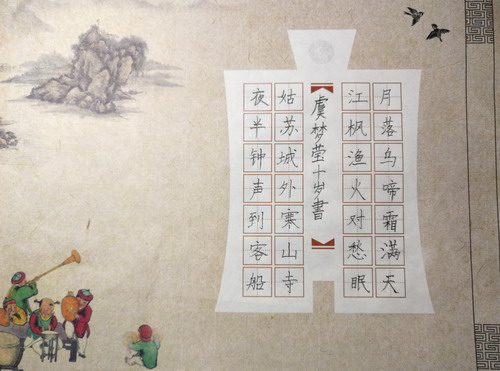 月落乌啼霜满天
江枫渔火对愁眠
虞梦莹十岁書
姑苏城外寒山寺
夜半钟声到客船